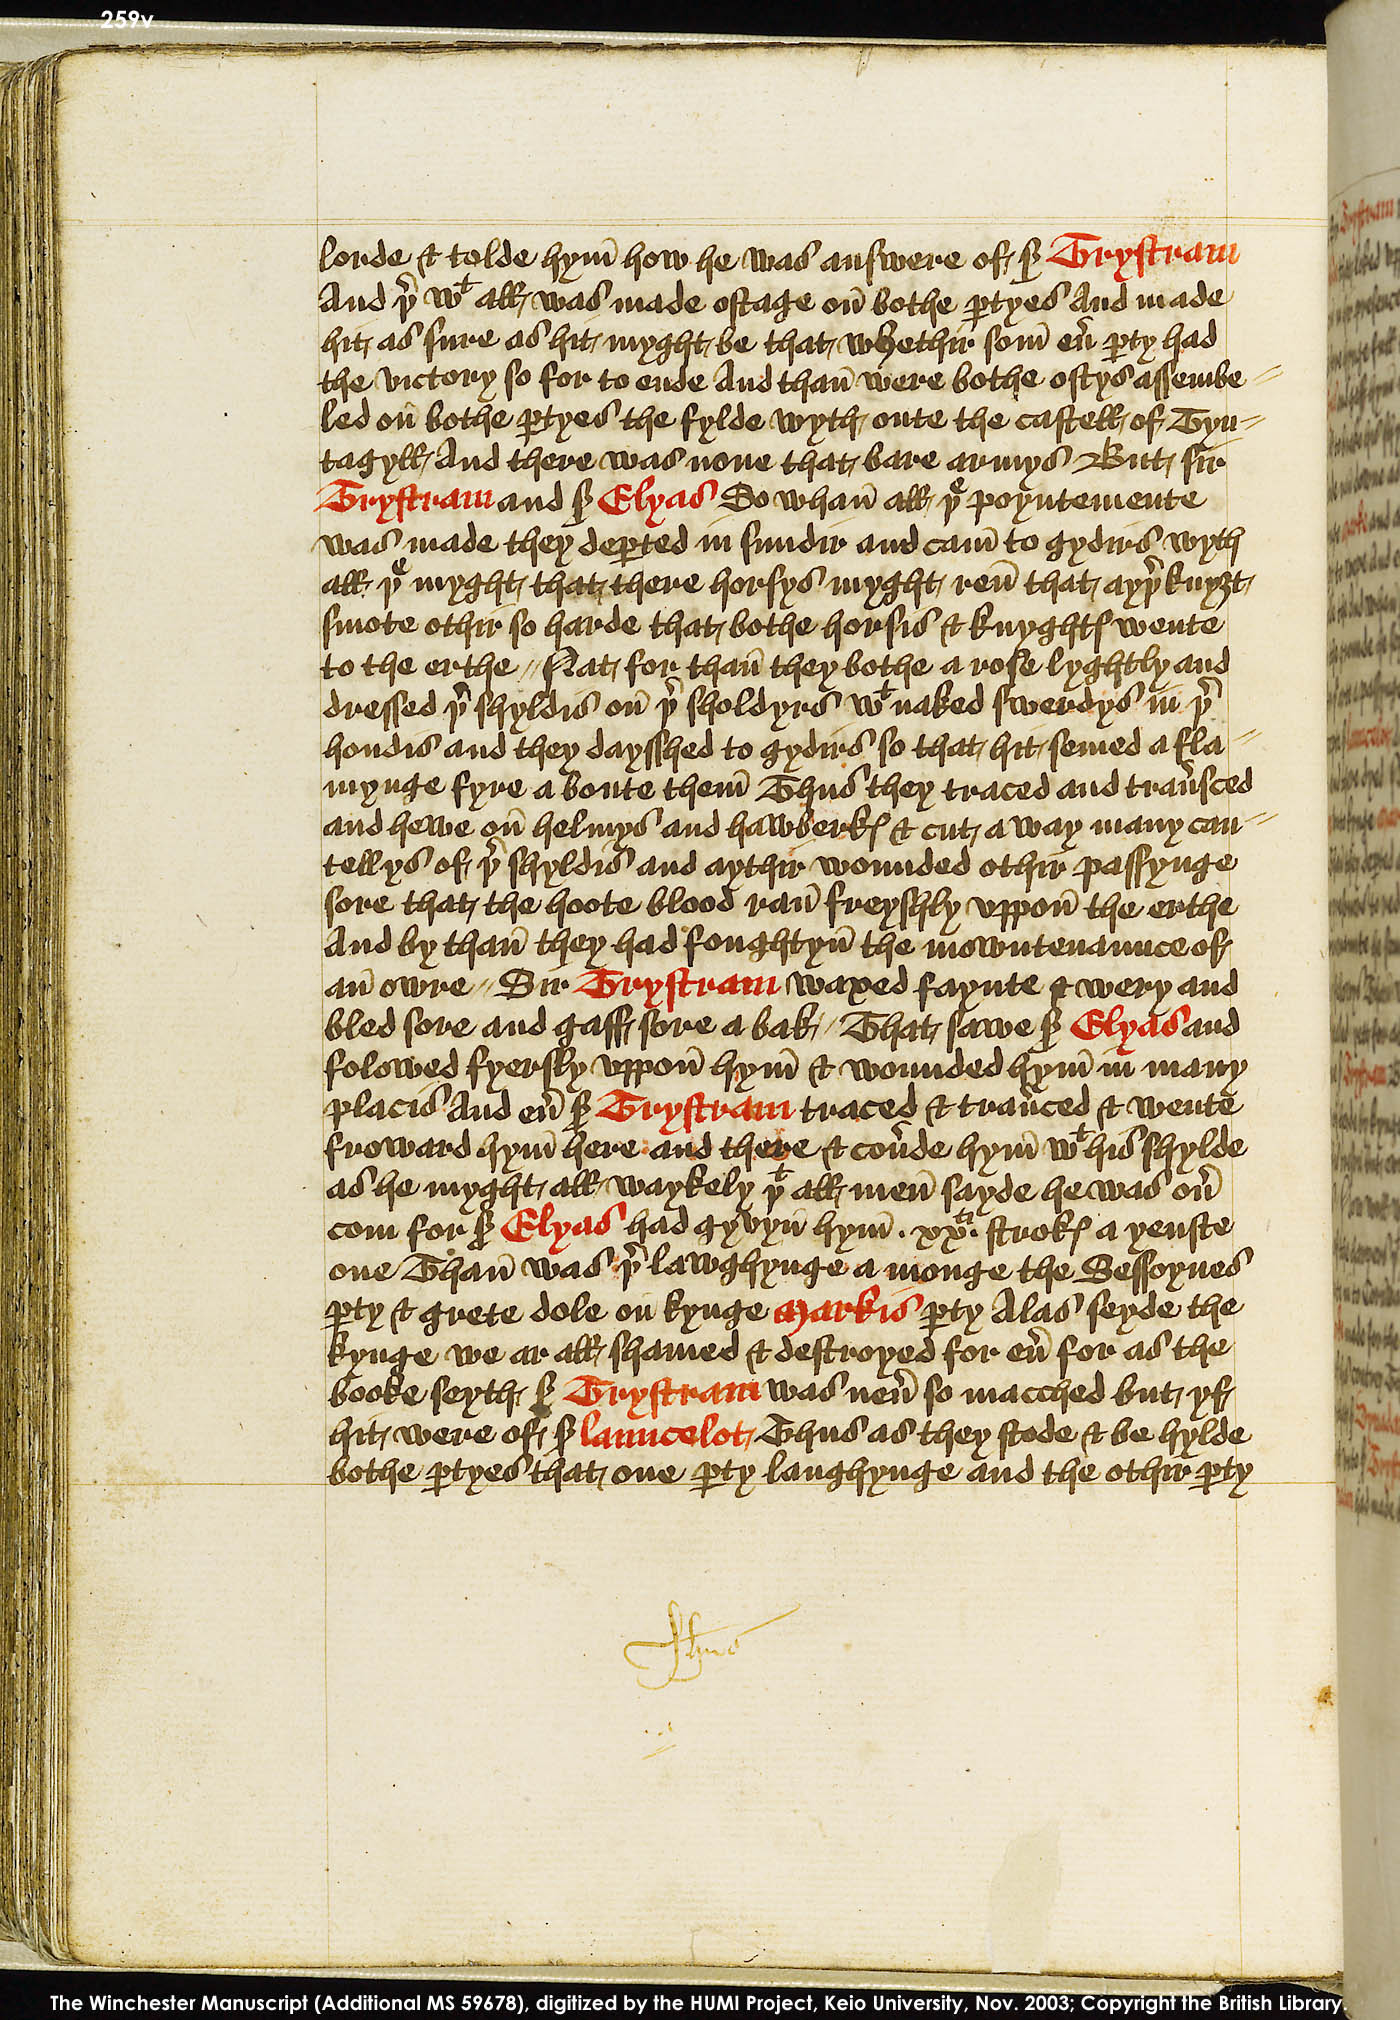 259v
lorde & tolde hym̄ how he was answere of sꝛ Trystram
And þr̄ wᵗ all was made ostage on̄ bothe ꝑtyes And made
hit as sure as hit myght be that whethir som̄ eū ꝑty had
the victory so for to ende And than̄ were bothe ostys assembe
led on̄ bothe ꝑtyes the fylde wyth oute the castell of Tyn
tagyll And there was none that bare armys But sir
Trystram and sꝛ Elyas So whan̄ all þᵉ poyntemente
was made they deꝑted in sundir and cam̄ to gydirs wyth
all þᵉ myght that there horsys myght ren̄ that ayþr̄ knyȝt
smote othir so harde that bothe horsis & knyghtꝭ wente
to the erthe // Nat for than̄ they bothe a rose lyghtly and
dressed þr̄ shyldis on̄ þr̄ sholdyrs wᵗ naked swerdys in þr̄
hondis and they daysshed to gydirs so that hit semed a fla
mynge fyre a boute them̄ Thus they traced and traūsced
and hewe on̄ helmys and hawberkꝭ & cut a way many can
tellys of þr̄ shyldis and aythir wounded othir passynge
sore that the hoote blood ran̄ freyshly vppon̄ the erthe
And by than̄ they had foughtyn̄ the mowntenaunce of
an̄ owre // Sir Trystram waxed faynte & wery and
bled sore and gaff sore a bak // That sawe sꝛ Elyas and
folowed fyersly vppon̄ hym̄ & wounded hym̄ in many
placis And eū sꝛ Trystram traced & traūced & wente
froward hym̄ here and there & coūde hym̄ wᵗ his shylde
as he myght all waykely þᵗ all men̄ sayde he was oū
com for sꝛ Elyas had gyvyn̄ hym̄ . xxᵗⁱ. strokꝭ a yenste
one Than̄ was þr̄ lawghynge a monge the Sessoynes
ꝑty & grete dole on̄ kynge Markis ꝑty Alas seyde the
kynge we ar all shamed & destroyed for eū for as the
booke seyth sꝛ Trystram was neū so macched but yf
hit were of sꝛ launcelot Thus as they stode & be hylde
bothe ꝑtyes that one ꝑty laughynge and the othir ꝑty
The Winchester Manuscript (Additional MS 59678), digitized by the HUMI Project, Keio University, Nov. 2003; Copyright the British Library.